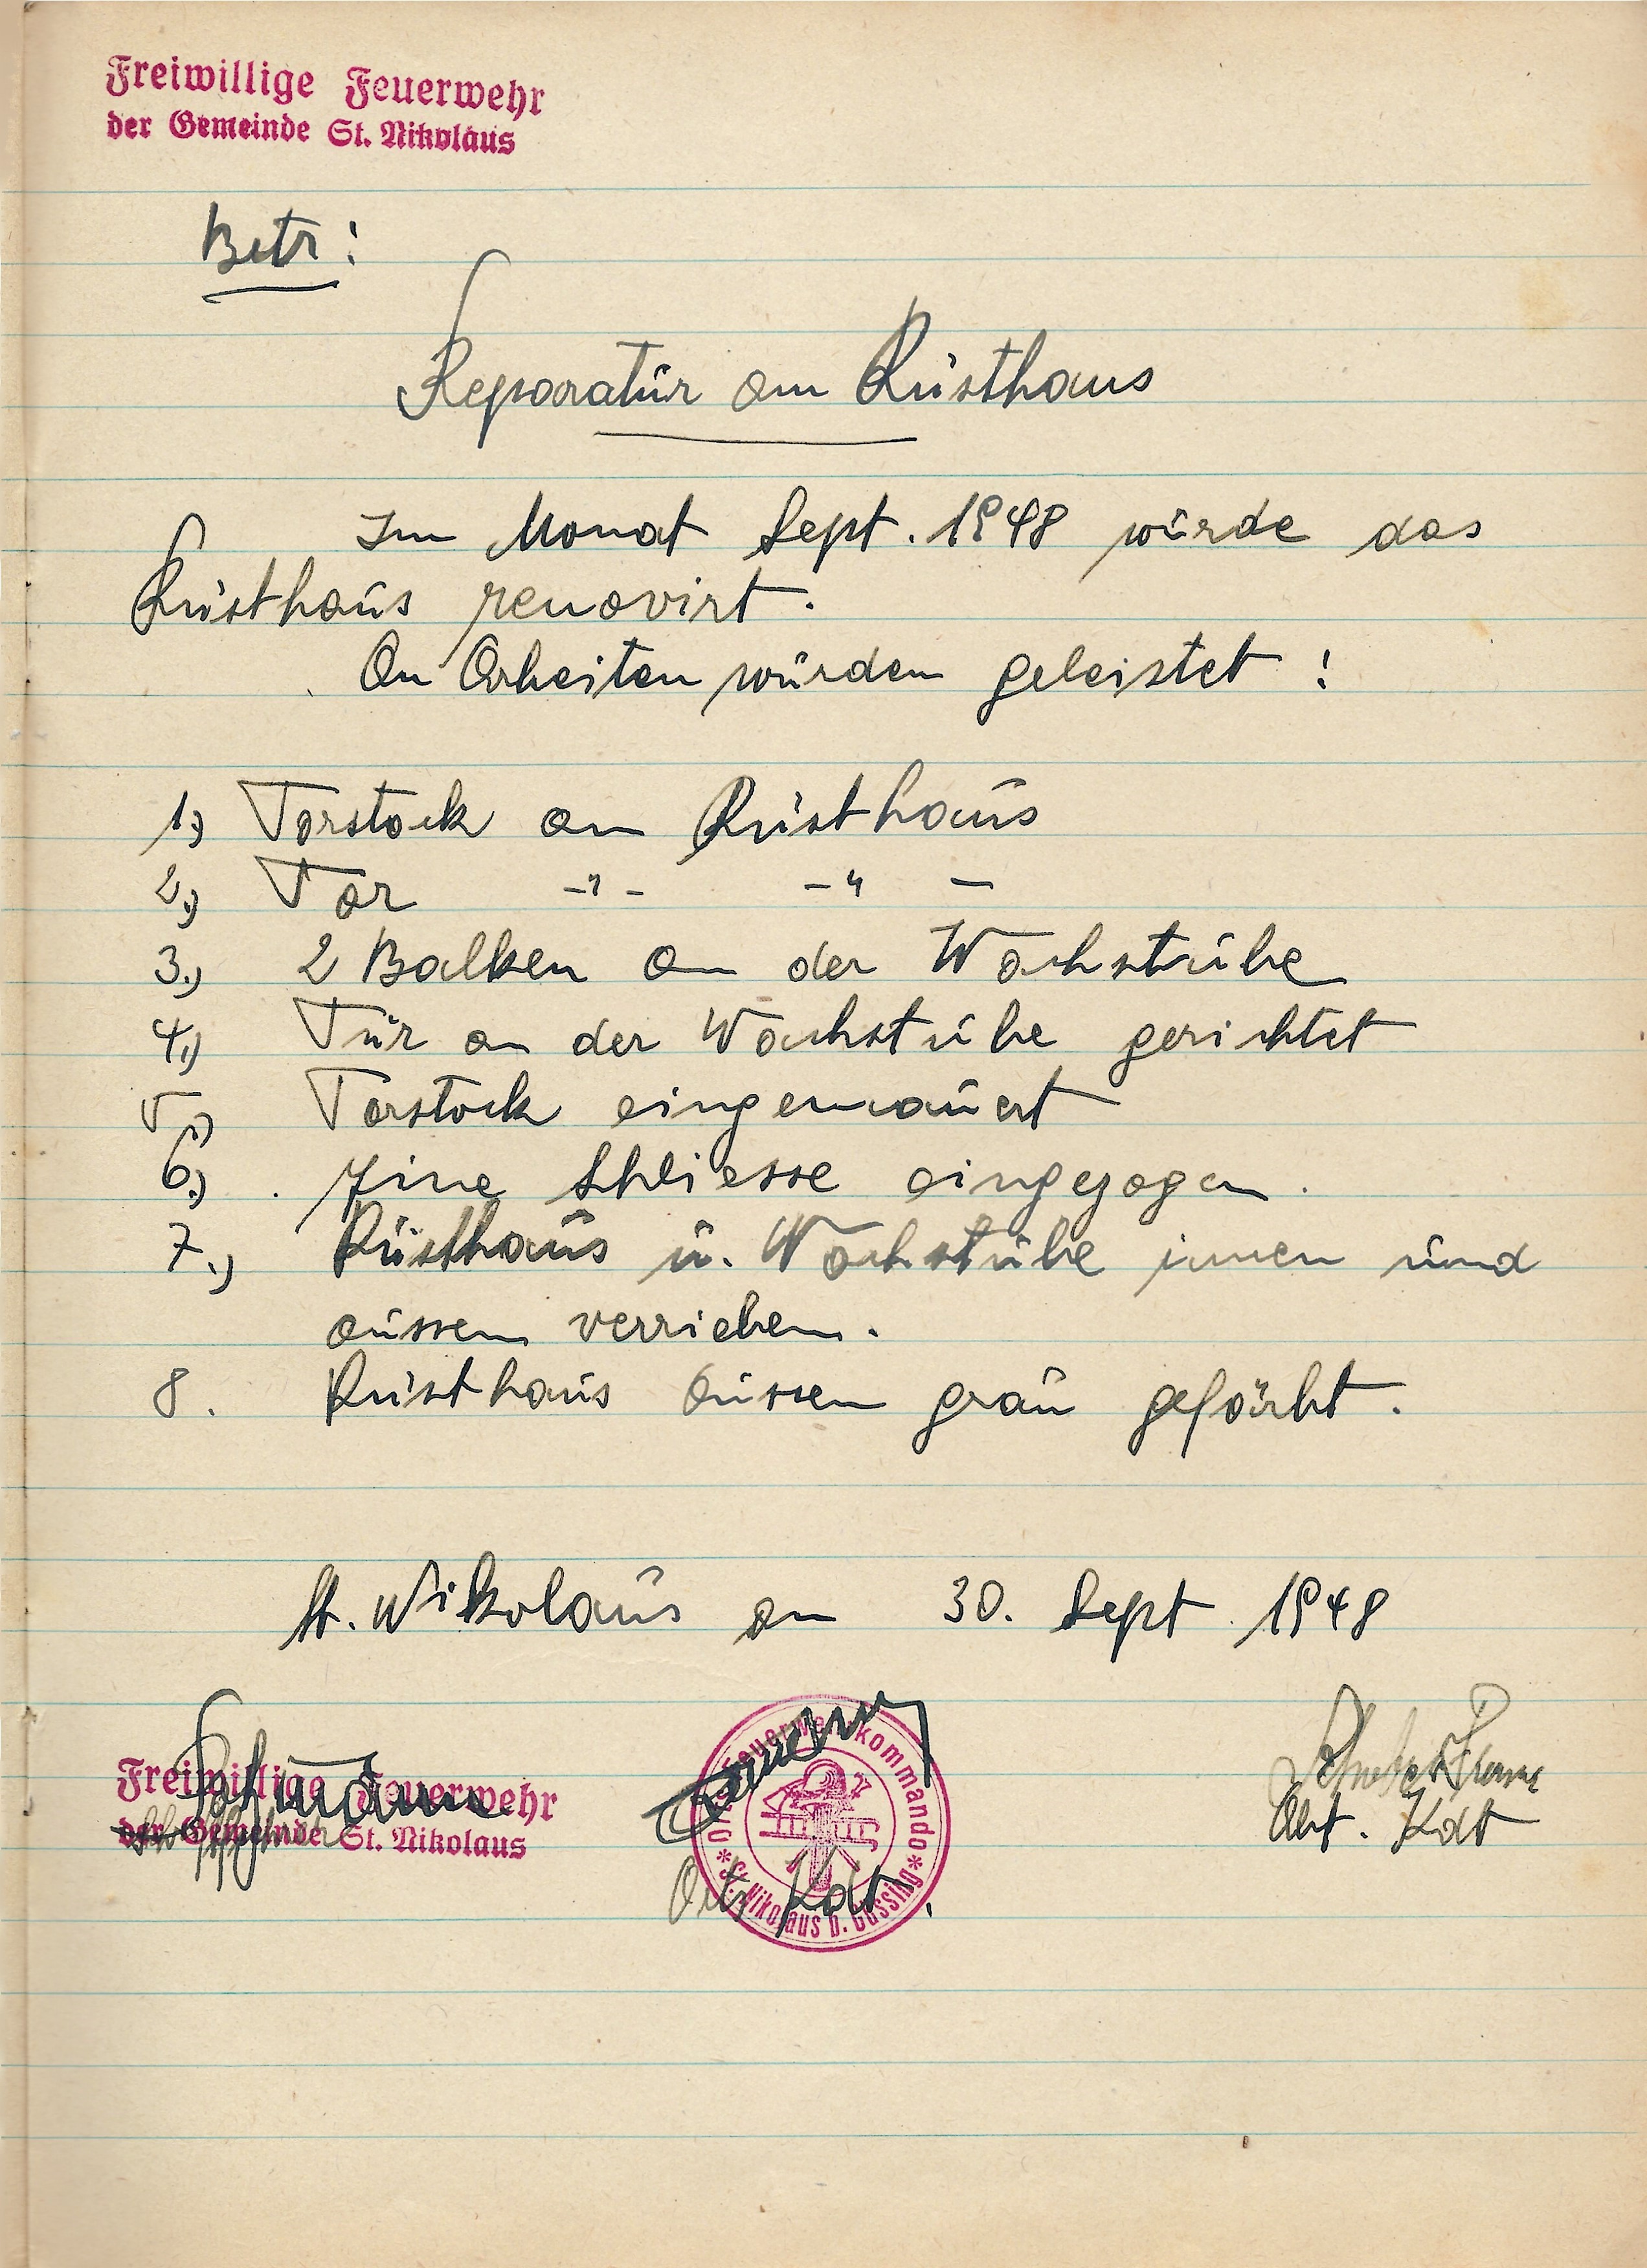 Freiwillige Feuerwehr
der Gemeinde St. Nikolaus
Betr:
Reparatur am Rüsthaus
Im Monat Sept. 1948 wurde das
Rüsthaus renovirt.
An Arbeiten wurden geleistet:
1.) Torstock am Rüsthaus
2.) Tor -"- -"-
3.) 2 Balken an der Wachstube
4.) Tür an der Wachstube gerichtet
5.) Torstock eingemauert
6.) Eine Schliesse eingezogen.
7.) Rüsthaus u. Wachstube innen und
aussen verrieben.
8. Rüsthaus aussen grau gefärbt.
St. Nikolaus am 30. Sept. 1948
Freiwillige Feuerwehr
der Gemeinde St. Nikolaus
Orts-Feuerwehrkommando
* St. Nikolaus b. Güssing *
Orts Kdt.
Abt. Kdt